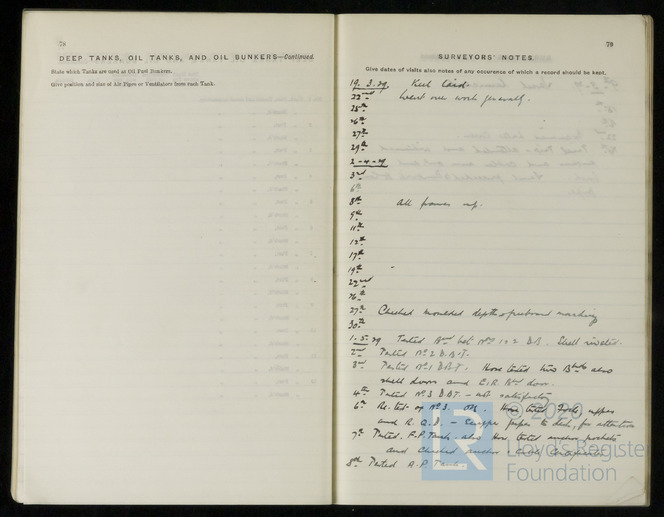 78
DEEP TANKS, OIL TANKS, AND OIL BUNKERS—Continued.
State which Tanks are used as Oil Fuel Bunkers.
Give position and size of Air Pipes or Ventilators from each Tank.
79
SURVEYORS' NOTES.
Give dates of visits also notes of any occurence of which a record should be kept.
19.3.29. Keel laid.
22nd Went over work generally.
25th
26th
27th
29th
2-4-29
3rd
6th
8th All frames up.
9th
11th
12th
17th
19th
22nd
26th
27th Checked moulded depth & freeboard marking
30th
1-5-29 Tested Bhd bet. Nos 1 & 2 D.B. Shell riveted.
2nd Tested No 2 D.B.T.
3rd Tested No 1 D.B.T. Hose tested two Bhds also
shell doors and E.R. Bhd door.
4th Tested No 3 D.B.T. - not satisfactory
6th Re-test of No 3. OK. Hose tested upper
and R.Q.D. - Scupper pipes to deck, for attention
7th Tested F.P. Tank. also Hose tested anchor pockets
and Checked anchor
8th Tested A.P. Tank.
© 2020
Lloyd's Register
Foundation
LR